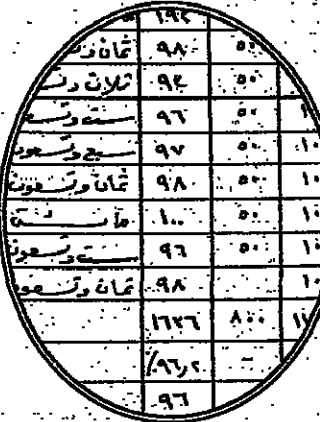 ٥٠ ٩٨ ثمان
٥٠ ٩٣ ثلاث
١٠ ٥٠ ٩٦ ست
١٠ ٥٠ ٩٧ سبع وتسعون
١٠ ٥٠ ٩٨ ثمان وتسعون
١٠ ٥٠ ١٠٠
١٠ ٥٠ ٩٦ ست وتسعون
١٠ ٩٨ ثمان وتسعون
٨٠٠ ١٦٣٦
٩٦٫٢٪
٩٦